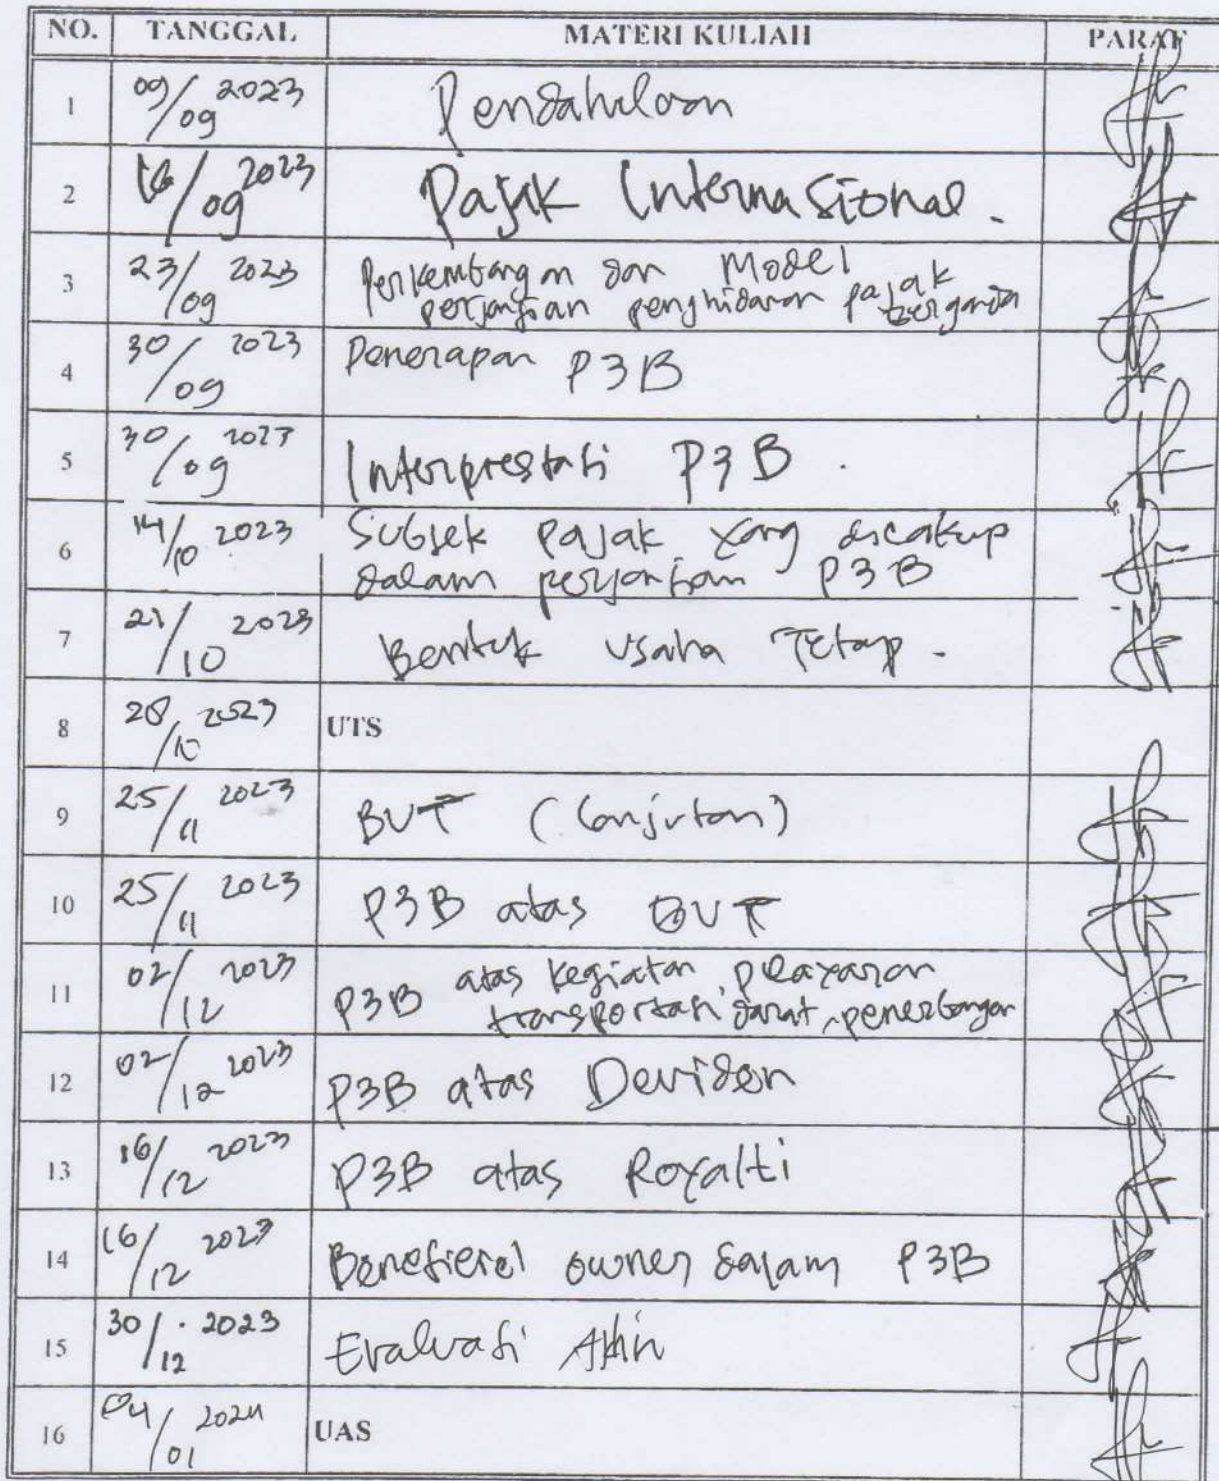 NO. TANGGAL MATERI KULIAH PARAF
1 09/09 2023 Pendahuluan
2 16/09 2023 Pajak Internasional.
3 23/09 2023 Perkembangan dan Model
perjanjian penghidaran pajak
berganda
4 30/09 2023 Penerapan P3B
5 30/09 2023 Interprestasi P3B.
6 14/10 2023 Subjek pajak yang dicakup
dalam perjanjian P3B
7 21/10 2023 Bentuk Usaha Tetap.
8 28/10 2023 UTS
9 25/11 2023 BUT (Lanjutan)
10 25/11 2023 P3B atas BUT
11 02/12 2023 P3B atas kegiatan, pelayaran
transportasi darat, penerbangan
12 02/12 2023 P3B atas Deviden
13 16/12 2023 P3B atas Royalti
14 16/12 2023 owner dalam P3B
15 30/12 2023 Evaluasi Akhir
16 04/01 2024 UAS